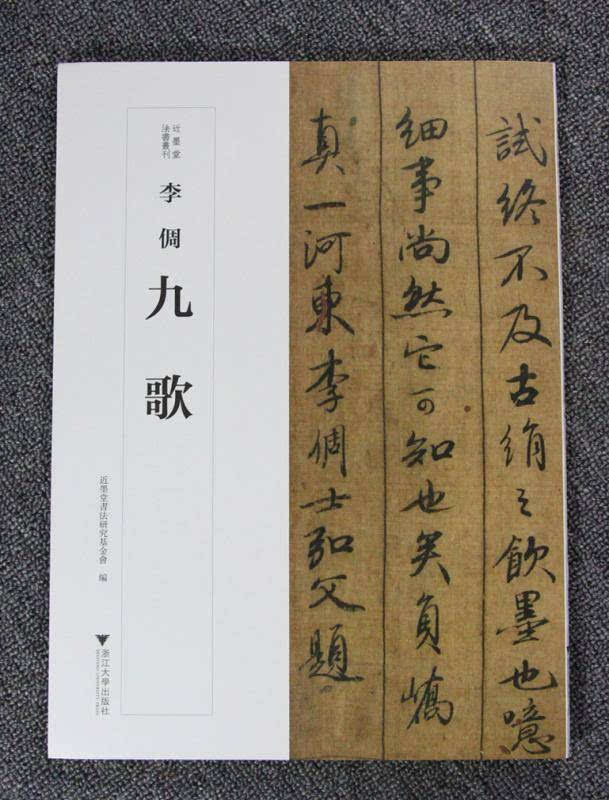 試終不及古絹之飲墨也噫
細事尚然它可知也矣負嶠
真一河東李倜士弘父題
近墨堂
法書叢刊
李倜
九歌
近墨堂書法研究基金會 編
浙江大學出版社
ZHEJIANG UNIVERSITY PRESS